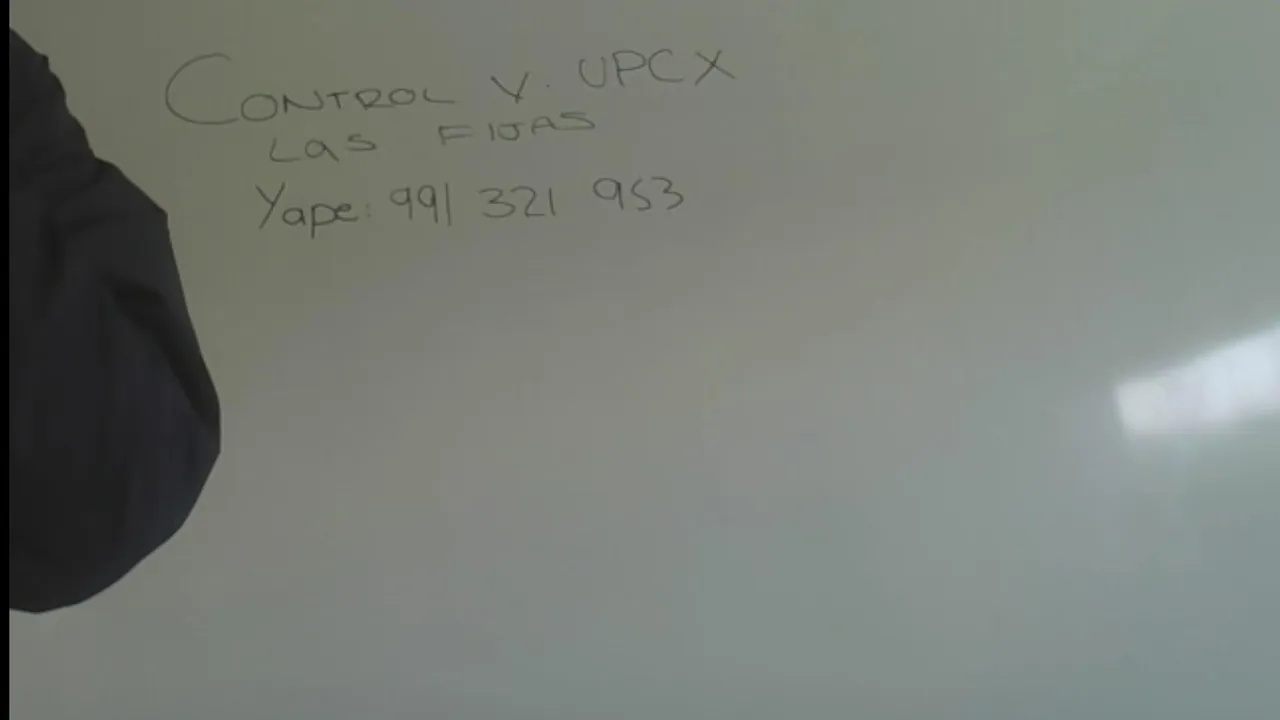 CONTROL V. UPCX
Las FIJAS
Yape: 991 321 953